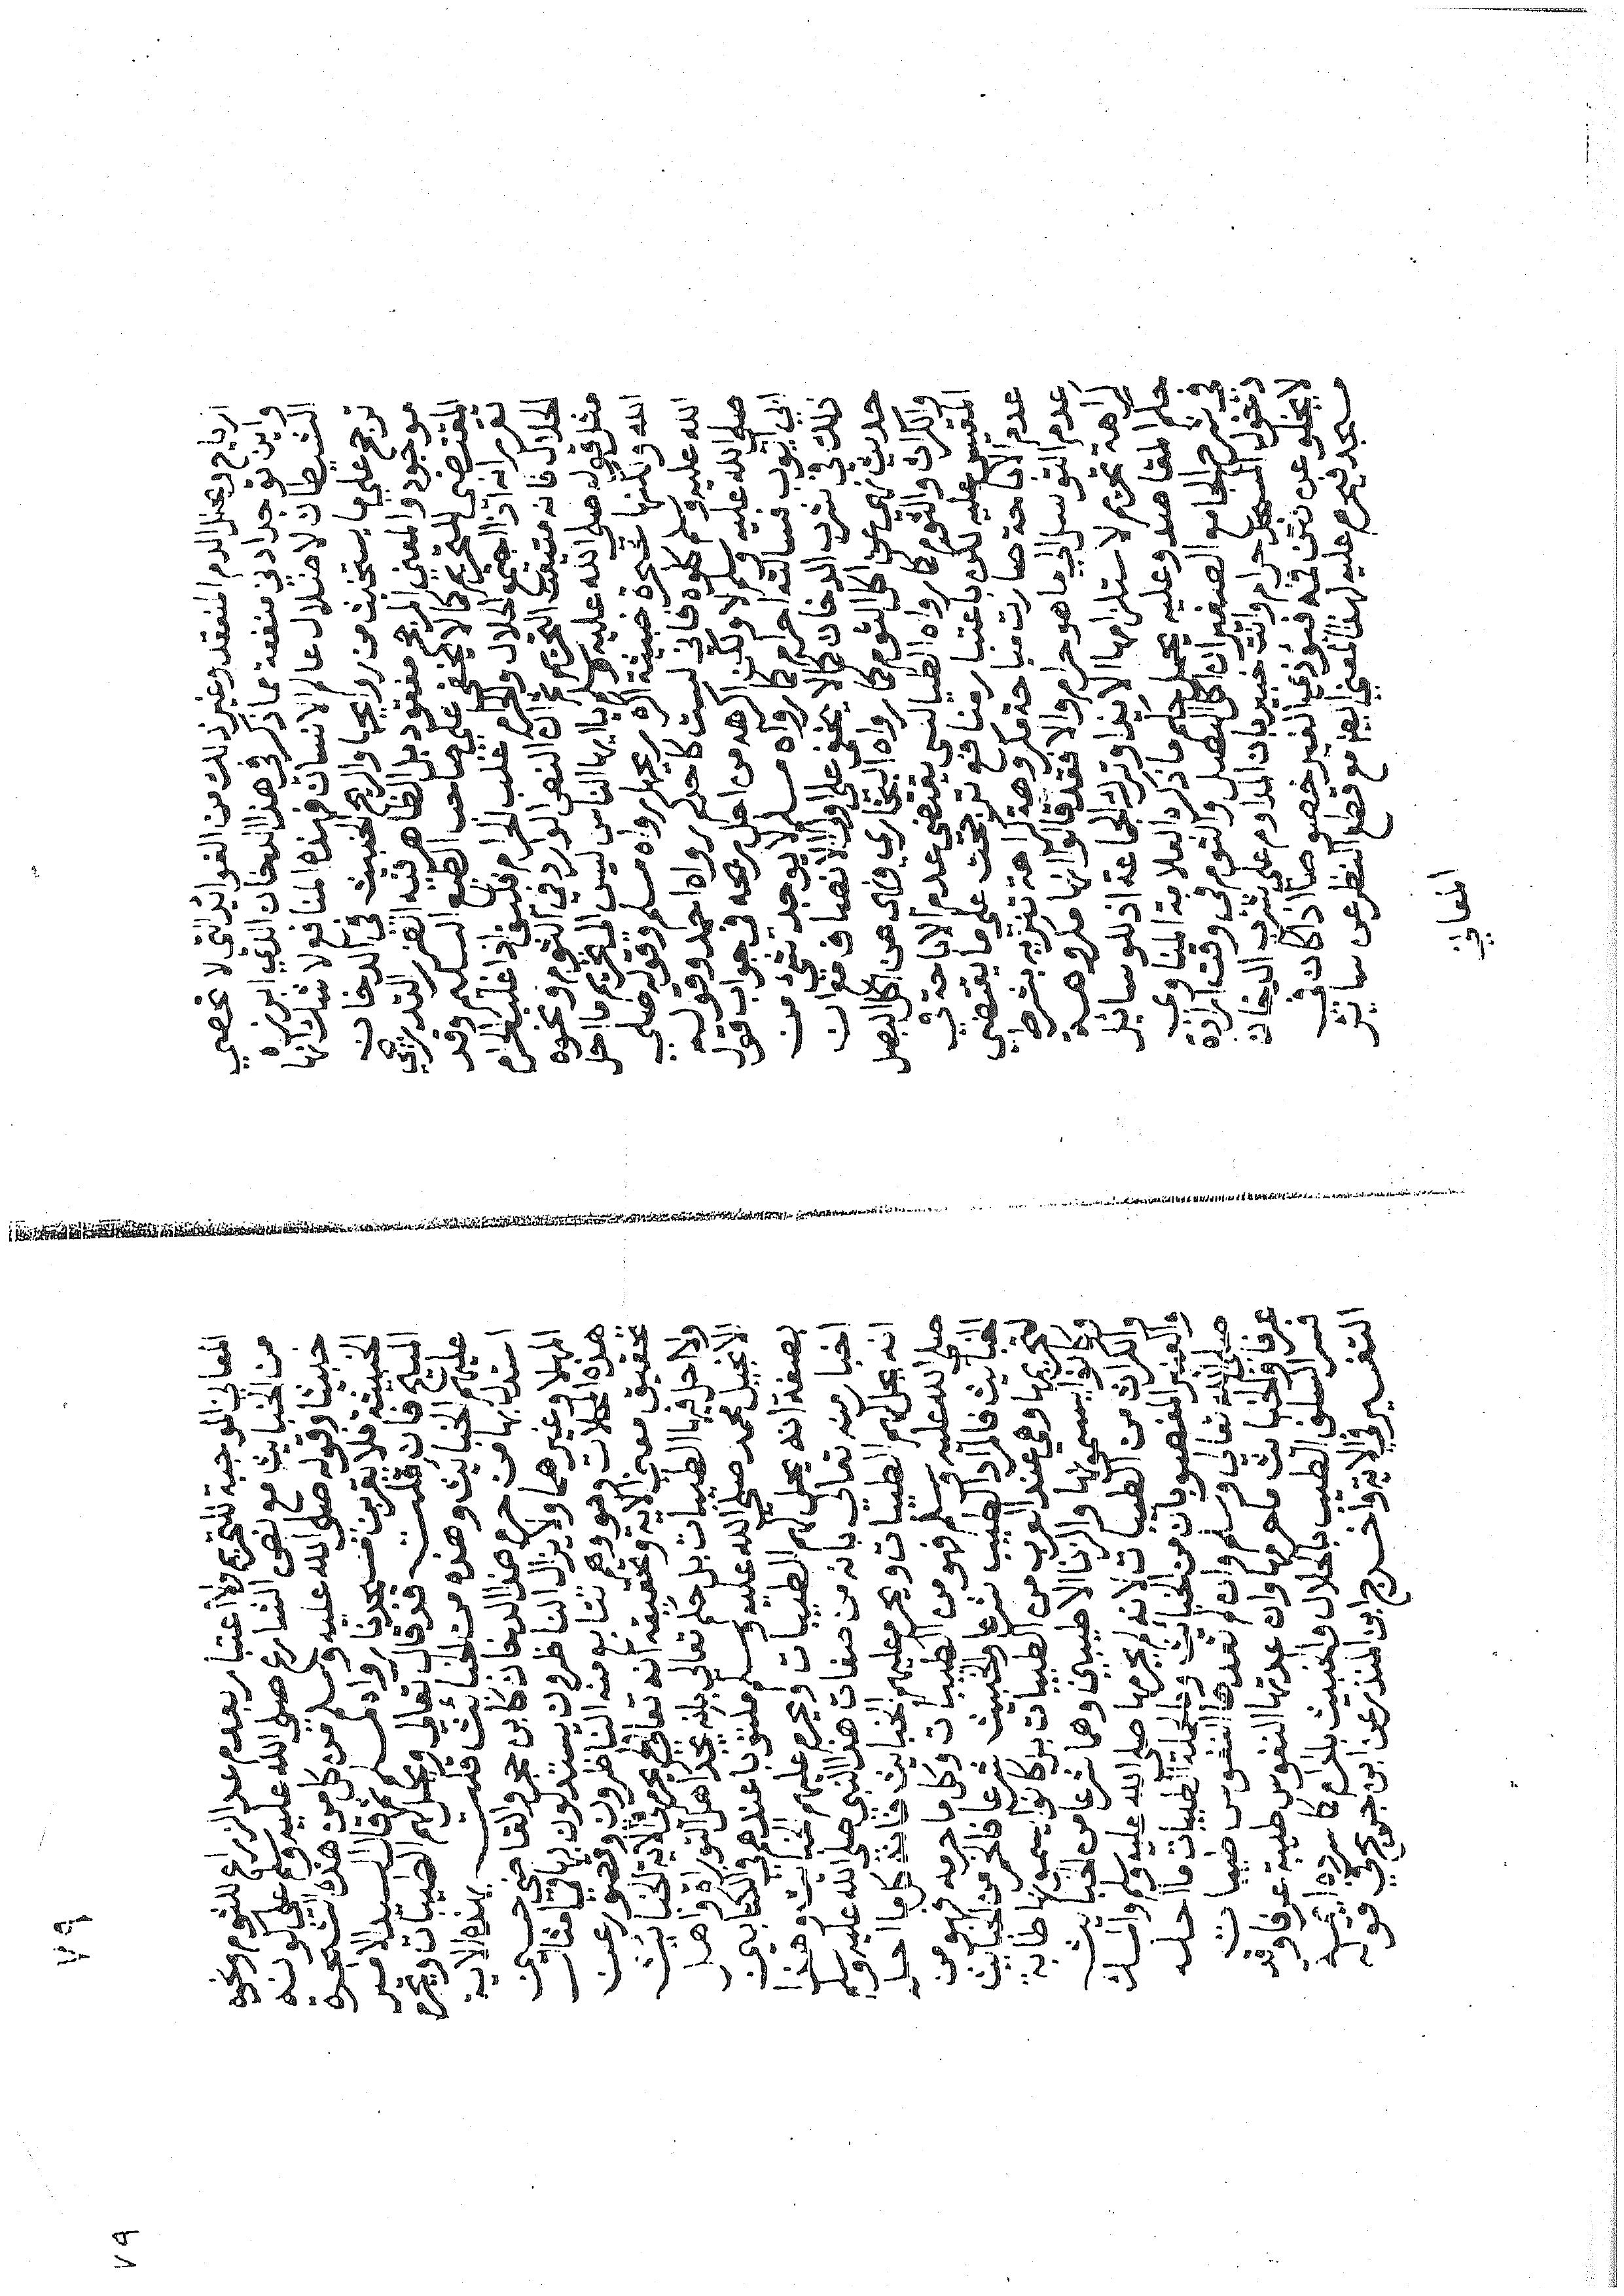 ارياح ويحلل الدم المنعقد وغير ذلك من الفوايد التي لا تحصي
واين توجد ادني منفعة مما ذكر في هذا الدخان الذي ابرزه
الشيطان لاضلال عالم الانسان فهذه المنافع لا شك انها
ترجح علي ما يستخبث من روايحها والريح الخبيث في الدخان
موجود والمعني المرجح مفقود بل الظاهر فيه الضرر التدريجي
المقتضي للتحريم كما لا يخفي علي صاحب الطبع السليم وقد
تقرر انه اذا اجتمع الحلال والحرام غلب الحرام فكيف اذا غلب الحرام
الحلال فانه متيقن التحريم ثم ان النص الوارد في الثوم ونحوه
مثل قوله صلي الله عليه وسلم يا ايها الناس ليس لي تحريم ما احل
الله ولكنها شجرة خبيثة اكره ريحها رواه مسلم وقوله صلي
الله عليه وسلم كلوه فاني لست كاحدكم رواه احمد وقوله
صلي الله عليه وسلم لا ولكن اكرهه من اجل ريحه في جواب قول
ابي ايوب فسالته احرام كما رواه مسلم لا يوجد شئ من
ذلك في شرب الدخان كما لا يخفي علي اولي الانصاف مع ان
حديث نهي عن اكل الثوم كما رواه البخاري ونهي عن اكل البصل
والكراث والثوم كما رواه الطيالسي يقتضي عدم الاباحة في
المقيس عليه لكن باعتبار منافع ترجحت علي ما يقتضي
عدم الاباحة صارت مباحة مكروهة كراهة تنزيه بشرط
عدم التوسل الي ما هو حرام والا فقد قالوا انها مكروهة
كراهة تحريم لاستلزامها الايذا وترك الجماعة اذ للوسائل
حكم المقاصد وعليه يحمل حكم ما ذكره العلامة المناوي
في شرح الجامع الصغير ان اكل البصل والثوم في وقت ارادة
دخول المسجد حرام وانت خبير بان المداوم علي شرب الدخان
لا يخلو عن نتن فمه فيؤذي الغير خصوصا اذا كان في
مسجد فيحرم عليه لهذا المعني ايضا مع قطع النظر عن ساير
المعاني
٧٩
٧٩
المعاني الموجبة للتحريم ولا اعتبار بعدم عد الزراع للثوم ونحوه
من الخبايث مع نص الشارع صلي الله عليه وسلم علي كونه
خبيثا وقوله صلي الله عليه وسلم من اكل من هذه الشجرة
الخبيثة فلا يقربن مسجدنا رواه مسلم ثم قال السيد الامير
المبيح فان قلت قد قال تعالي ويحل لهم الطيبات ويحرم
عليهم الخبائث وهذه من الخبائث قلت بهذه الاية
استدل بها من حرم هذا الدخان كابن حجر والقاضي حسين
المهلا وغيرهما ولا يزال الناظرون يستدلون بها في امثال
هذه المحلات وهو وهم تتابع منه الناظرون وقصور عن
تحقيق معني الاية وتحقيقه انه تعالي لم يحرم في الاية الخبائث
ولا احل فيها الطيبات بل حكم تعالي بانه يجد اهل التوراة واهل
الانجيل محمد صلي الله عليه وسلم مكتوبا عندهم في الكتابين
بصفة انه يحل لهم الطيبات ويحرم عليهم الخبايث وهذا
اخبار منه تعالي بانه من صفات هذا النبي صلي الله عليه وسلم
انه يحل لهم الطيبات ويحرم عليهم الخبايث فكل ما احل
صلي الله عليه وسلم فهو من الطيبات وكل ما حرمه فهو من
الخبايث فالمراد الطيب شرعا والخبيث شرعا فالخمر من الخبايث
تحريمها وهي عند العرب من الطيبات بل كانوا يسمونها طابة
وكانوا يسمونها والزنا الاطيبين وهما شرعا من الخبايث
والكراث من الطيبات لانه لم يحرمها صلي الله عليه وسلم والمسك
والعنبر المغصوبان من الخبائث وبالجملة الطيبات ما احله
صلي الله تعالي وسلم وان لم تعدها النفوس طيبات
عرفا والخبائث ما حرمها وان عدتها النفوس طيبة عرفا وقد
فسر السلف الطيب بالحلال والخبيث بالحرام كما سرده ائمة
التفسير في الاية واخرج ابن المنذر عن ابن جريج في قوله